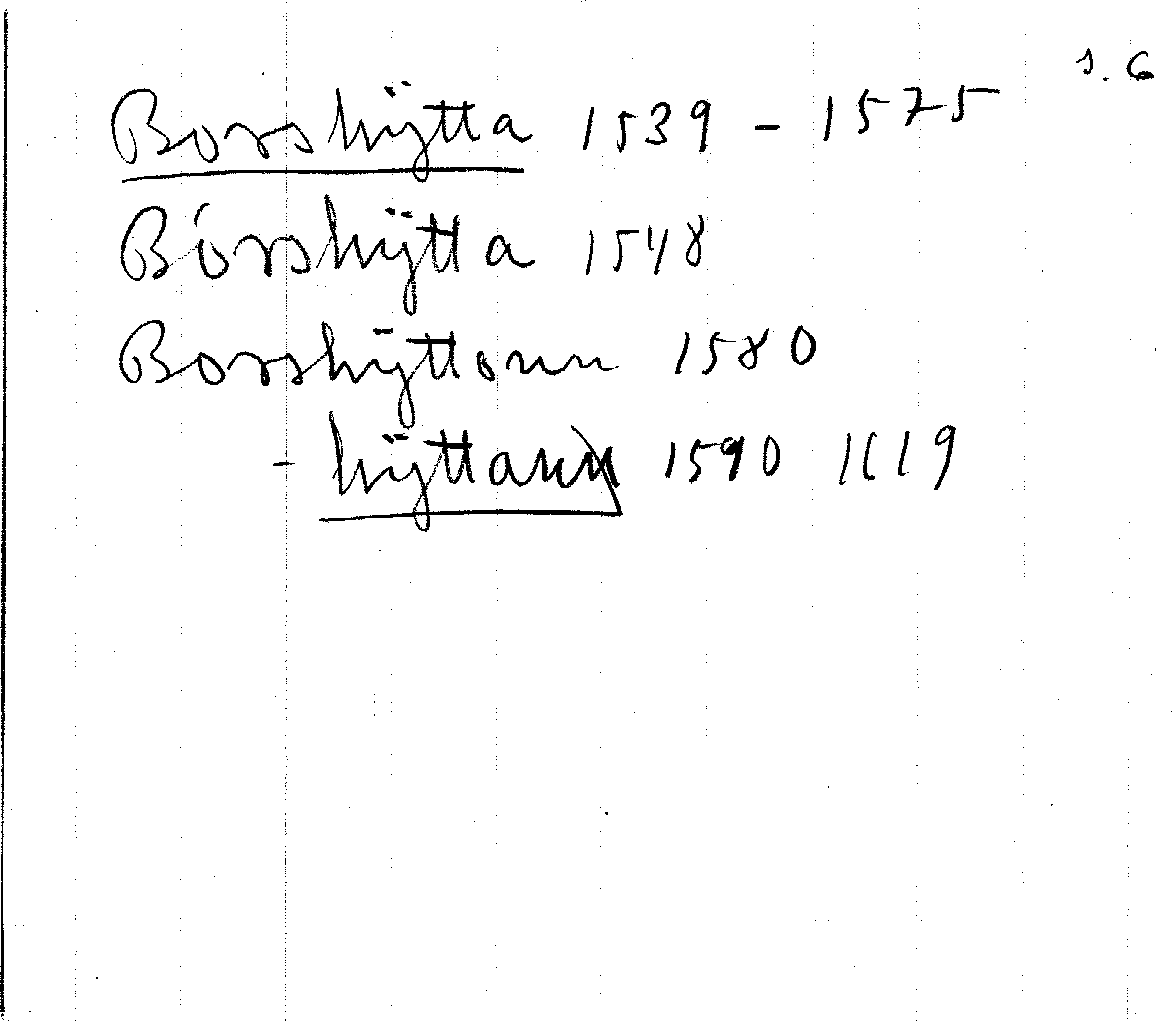 s. 6
Borsshÿtta 1539 - 1575
Bórsshÿtta 1548
Borsshÿttonn 1580
- hÿttann 1590 1619